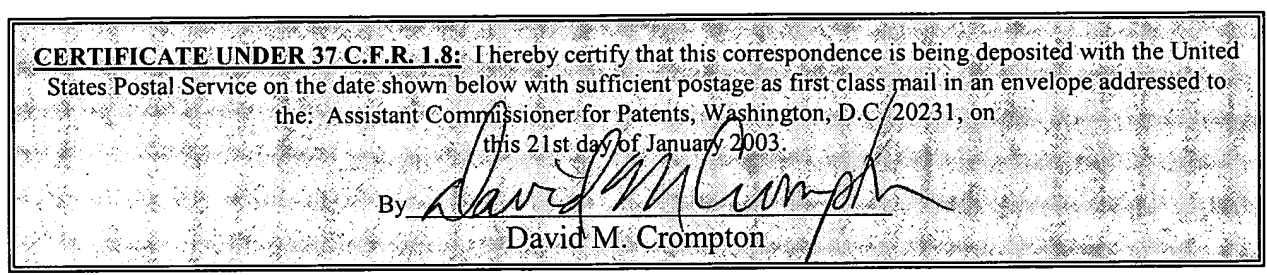 CERTIFICATE UNDER 37 C.F.R. 1.8: I hereby certify that this correspondence is being deposited with the United
States Postal Service on the date shown below with sufficient postage as first class mail in an envelope addressed to
the: Assistant Commissioner for Patents, Washington, D.C. 20231, on
this 21st day of January 2003.
By David M Crompton
David M. Crompton